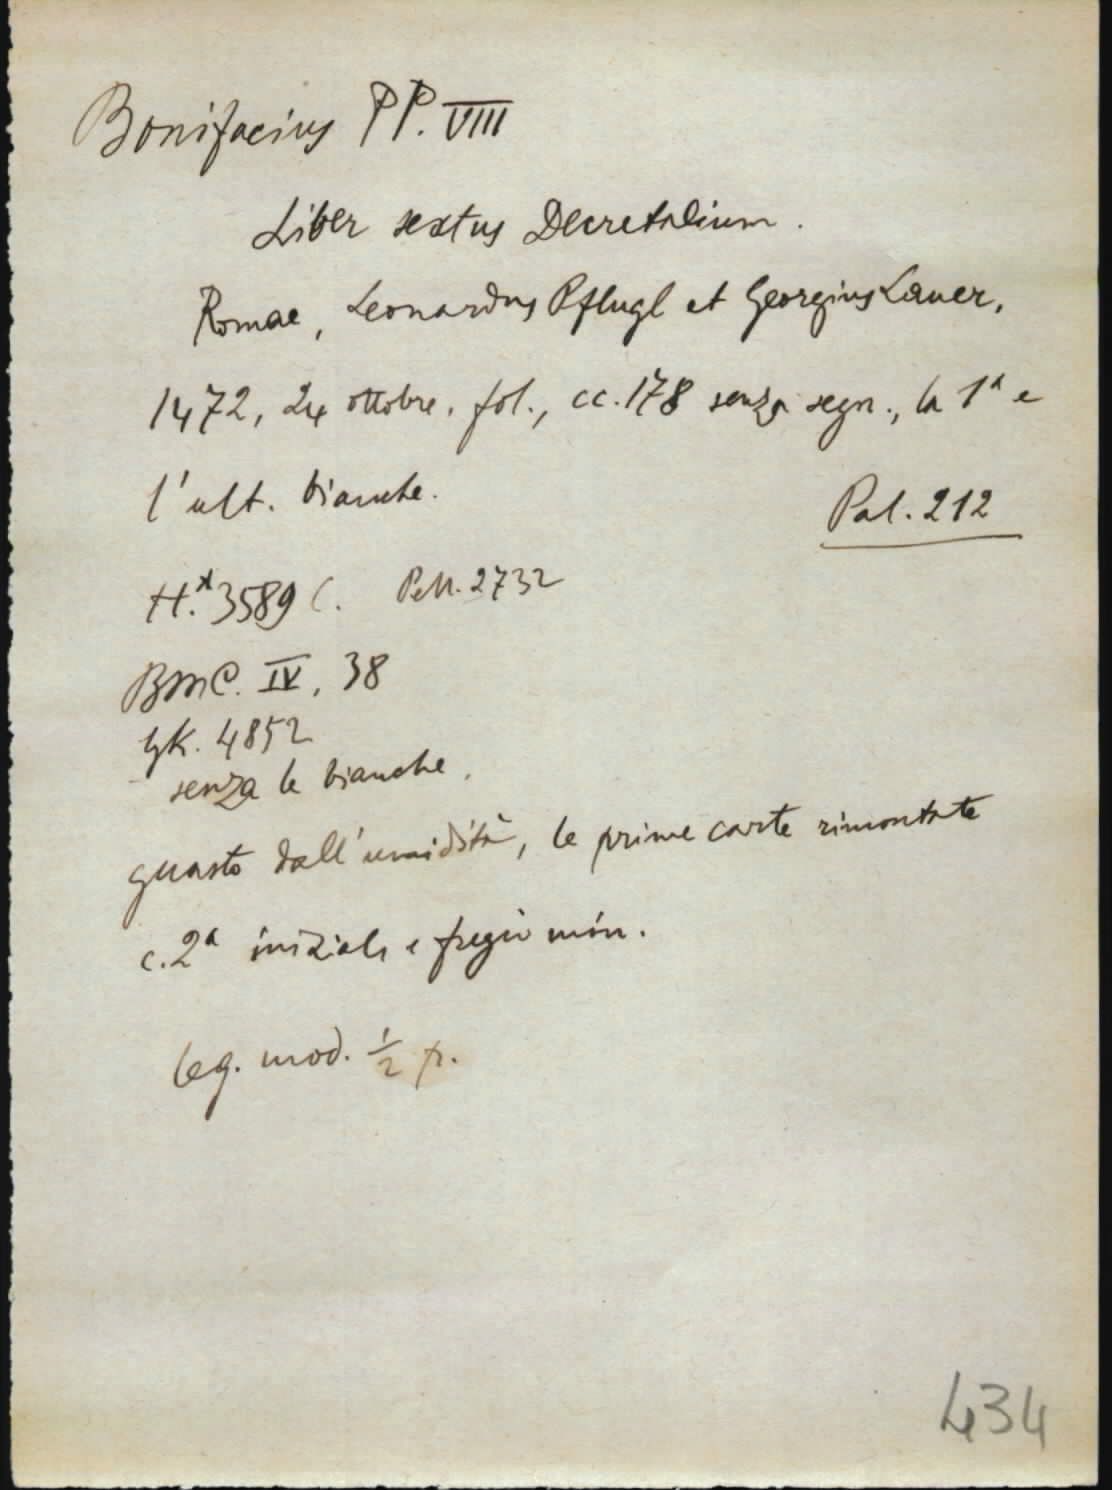 Bonifacius PP. VIII
Liber sextus Decretalium.
Romae, Leonardus Pflugl et Georgius Lauer,
1472, 24 ottobre. fol., cc. 178 senza segn., la 1ª e
l'ult. bianche.
Pal. 212
H.* 3589 C. Pell. 2732
BMC. IV, 38
GK. 4852
senza le bianche.
guasto dall'umidità, le prime carte rimontate
c. 2ª iniziale e fregio min.
leg. mod. ½ p.
434